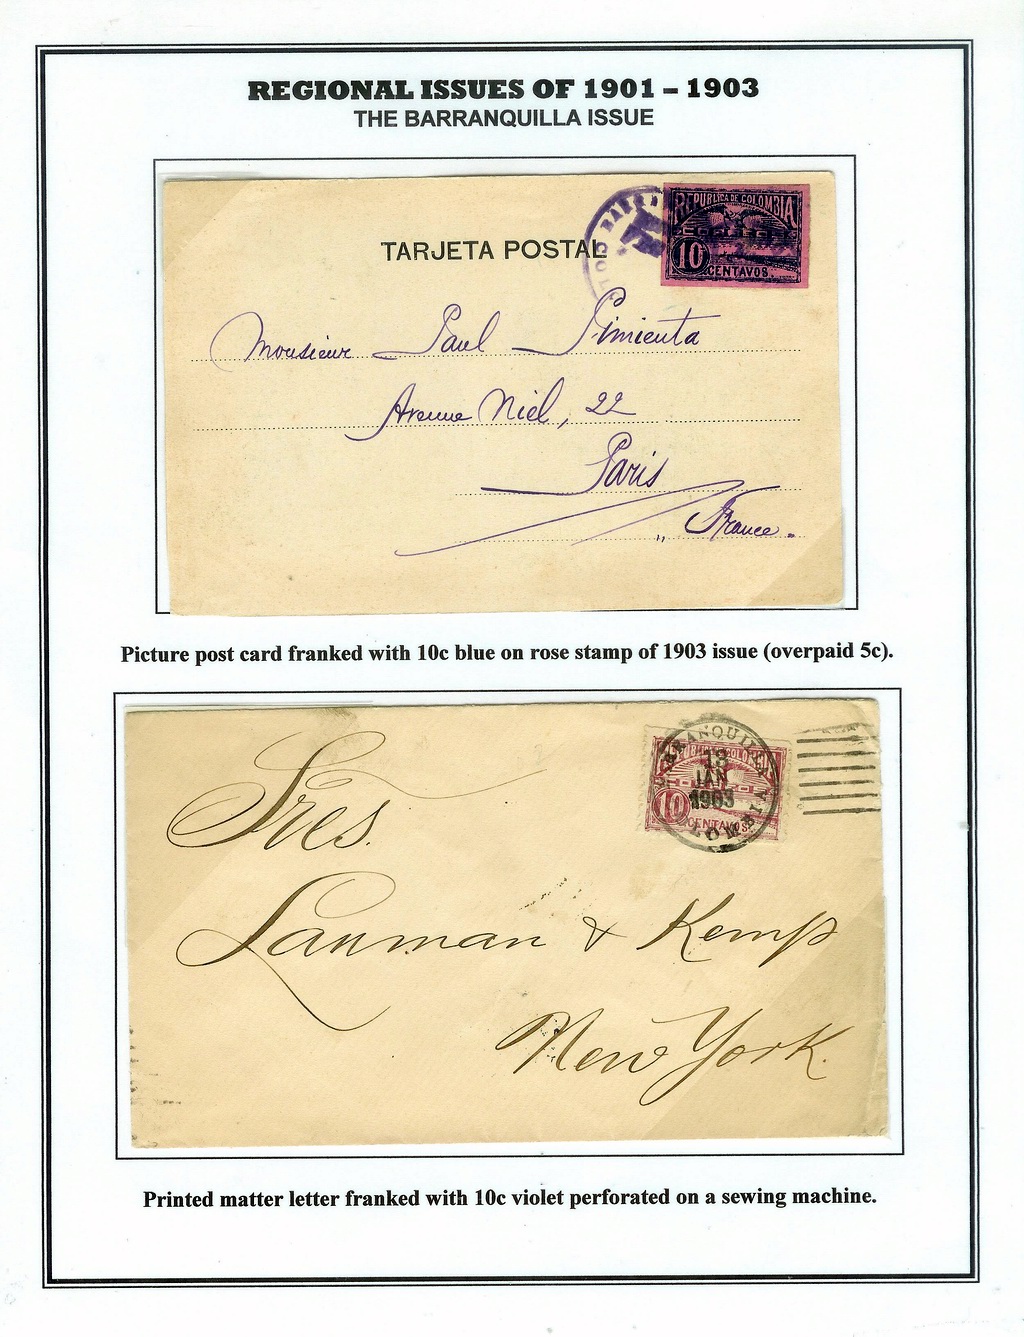 REGIONAL ISSUES OF 1901 – 1903
THE BARRANQUILLA ISSUE
REPUBLICA DE COLOMBIA
10
CENTAVOS.
TARJETA POSTAL
Monsieur Paul Pimienta
Avenue Niel, 22
Paris
" France.
Picture post card franked with 10c blue on rose stamp of 1903 issue (overpaid 5c).
REPUBLICA DE COLOMBIA
10
CENTAVOS.
BARRANQUILLA
13
JAN
1903
COLOMBIA
Sres.
Lanman & Kemp
New York.
Printed matter letter franked with 10c violet perforated on a sewing machine.